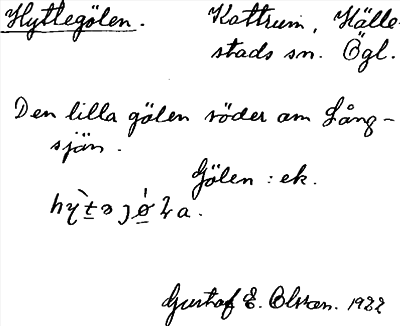 Hyttegölen. Kattrum, Hälle-
stads sn. Ögl.
Den lilla gölen söder om Lång-
sjön.
Gölen : ek.
Gustaf E. Olsson. 1922